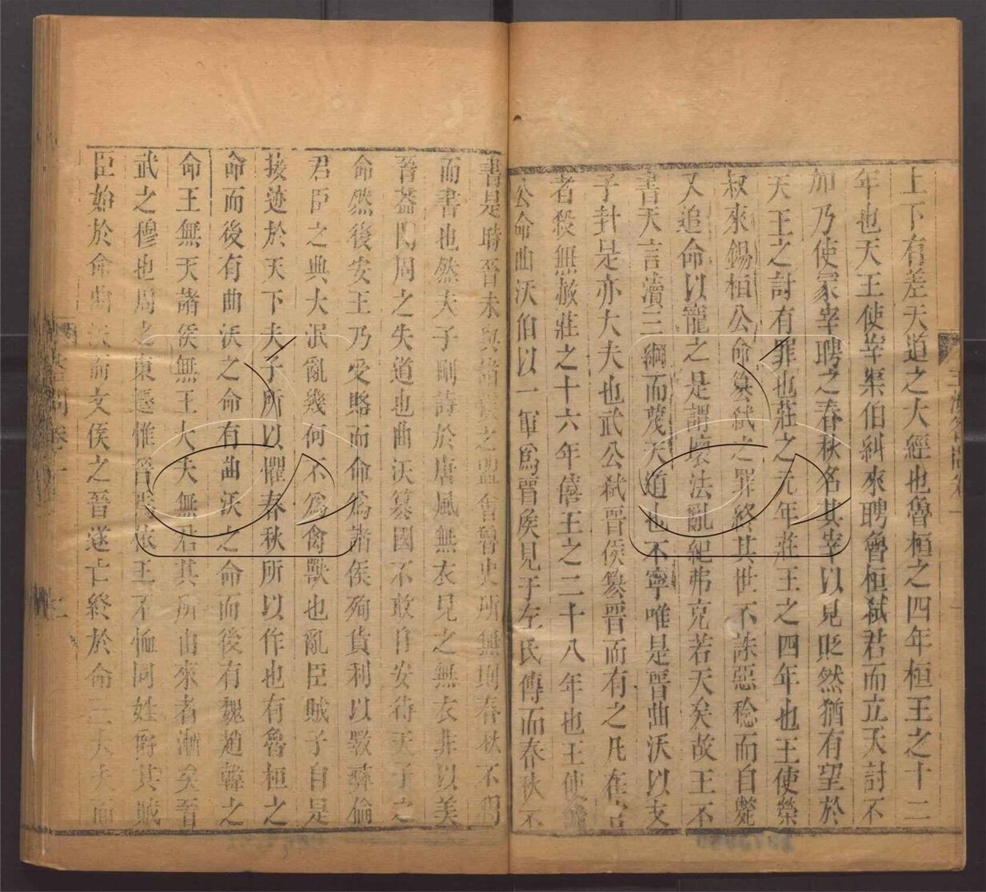 上下有差天道之大經也魯桓之四年桓王之十二
年也天王使宰渠伯糾來聘魯桓弑君而立天討不
加乃使冢宰聘之春秋名其宰以見貶然猶有望於
天王之討有罪也莊之元年莊王之四年也王使榮
叔來錫桓公命簒弑之罪終其世不誅惡稔而自斃
又追命以寵之是謂壞法亂紀弗克若天矣故王不
書天言瀆三綱而蔑天道也不寧唯是晋曲沃以支
子封是亦大夫也武公弑晋侯簒晋而有之凡在
者殺無赦莊之十六年僖王之二十八年也王使
公命曲沃伯以一軍為晋矦見于左氏傳而春秋不
書是時晋未與諸之盟會魯史所無則春秋不得
而書也然夫子刪詩於唐風無衣見之無衣非以美
晉蓋閔周之失道也曲沃簒國不敢自安待天子之
命然後安王乃受賂而命為諸侯殉貨利以斁彝倫
君臣之典大泯亂幾何不為禽獸也亂臣賊子自是
接迹於天下夫子所以懼春秋所以作也有魯桓之
命而後有曲沃之命有曲沃之命而後有魏趙韓之
命王無天諸侯無王大夫無君其所由來者漸矣晉
武之穆也周之東遷惟晋焉依王不恤同姓爵其賊
臣始於命曲沃而文侯之晉遂亡終於命三大夫而